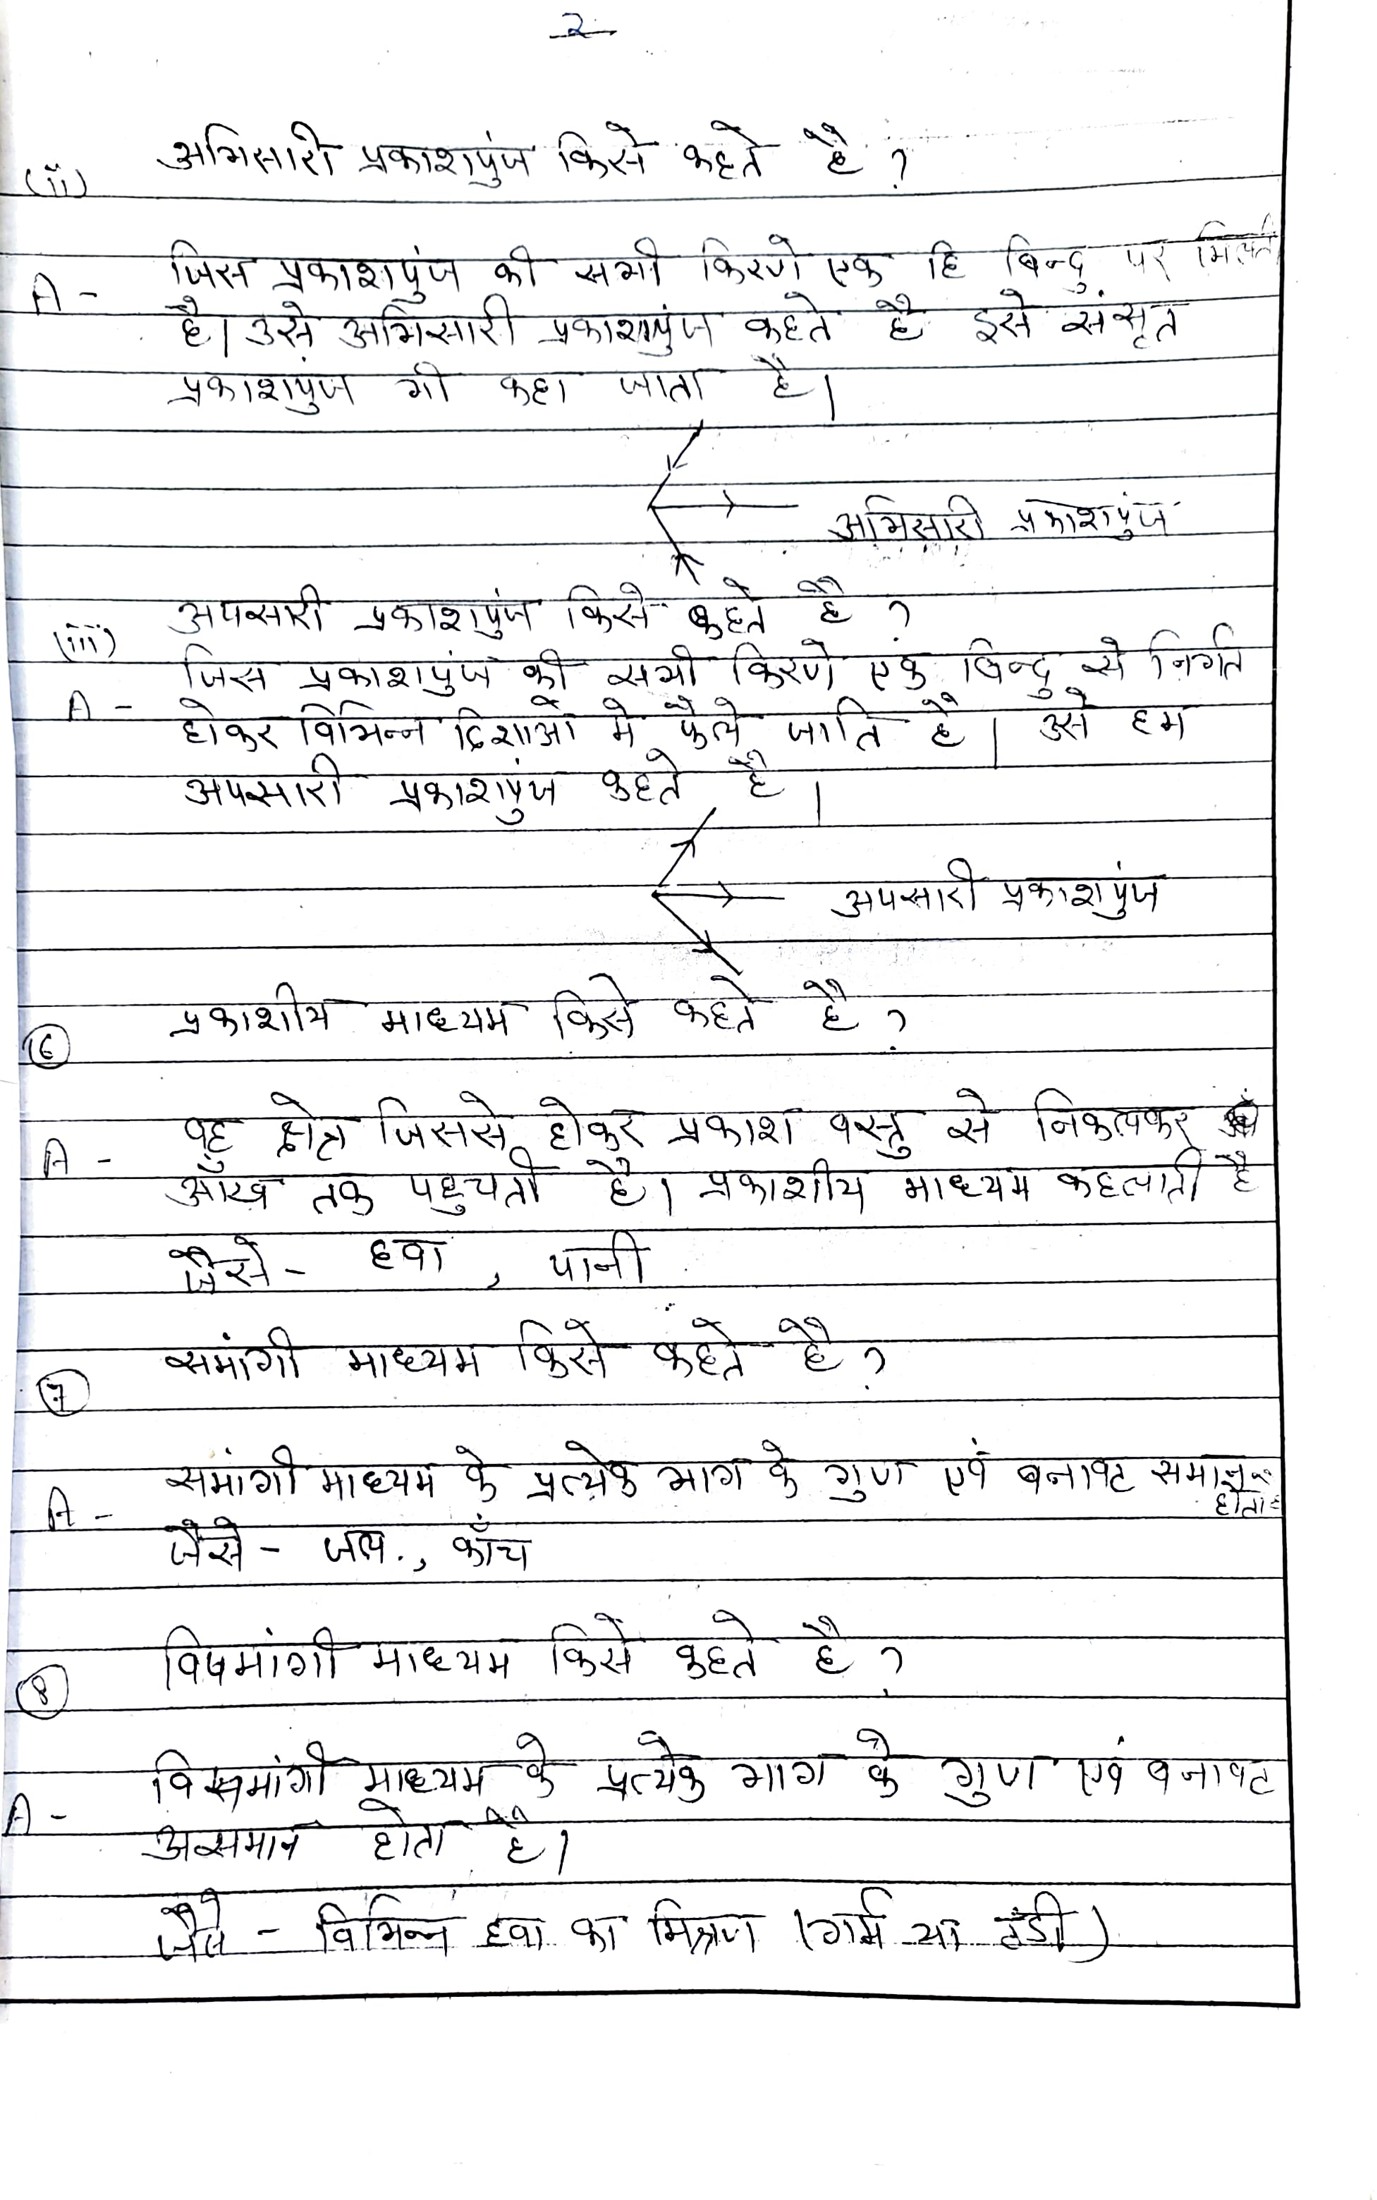 2
(ii) अभिसारी प्रकाशपुंज किसे कहते है ?
A - जिस प्रकाशपुंज की सभी किरणे एक हि बिन्दु पर मिलती
है। उसे अभिसारी प्रकाशपुंज कहते है इसे संसृत
प्रकाशपुंज भी कहा जाता है।
अभिसारी प्रकाशपुंज
(iii) अपसारी प्रकाशपुंज किसे कहते है ?
A - जिस प्रकाशपुंज की सभी किरणे एक बिन्दु से निर्गत
होकर विभिन्न दिशाओं मे फैले जाति है। उसे हम
अपसारी प्रकाशपुंज कहते है।
अपसारी प्रकाशपुंज
6 प्रकाशीय माध्यम किसे कहते है ?
A - वह क्षेत्र जिससे होकर प्रकाश वस्तु से निकलकर
आँख तक पहुचती है। प्रकाशीय माध्यम कहलाती है
जैसे - हवा , पानी
7 समांगी माध्यम किसे कहते है ?
A - समांगी माध्यम के प्रत्येक भाग के गुण एवं बनावट समान
होता
जैसे - जल., काँच
8 विषमांगी माध्यम किसे कहते है ?
A - विषमांगी माध्यम के प्रत्येक भाग के गुण एवं बनावट
असमान होता है।
जैसे - विभिन्न हवा का मिश्रण (गर्म या ठंडी)